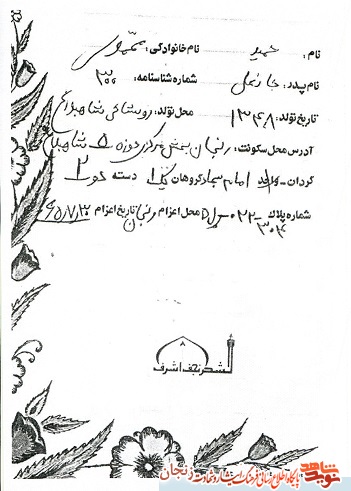 نام : حمید نام خانوادگی : محمودی
نام پدر : جانعلی شماره شناسنامه : ۳۰۰
تاریخ تولد : ۱۳۴۸ محل تولد : روستای
آدرس محل سکونت : زنجان بخش مرکزی حوزه ۵
گردان - امام سجاد گروهان یک ۱ دسته ۲
شماره پلاک ۰۲۲ - ۳۰۴ محل اعزام زنجان تاریخ اعزام ۶۵/۷/۳۰
لشگر نجف اشرف
۸
شاهد
نوید
پایگاه اطلاع رسانی فرهنگ ایثار و شهادت زنجان